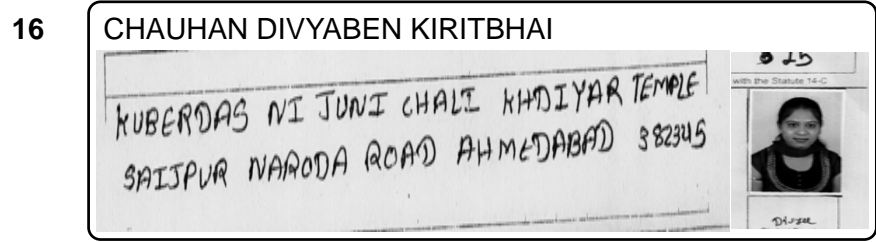 16 CHAUHAN DIVYABEN KIRITBHAI
KUBERDAS NI JUNI CHALI KHDIYAR TEMPLE
SAIJPUR NARODA ROAD AHMEDABAD 382345
with the Statute 14-C